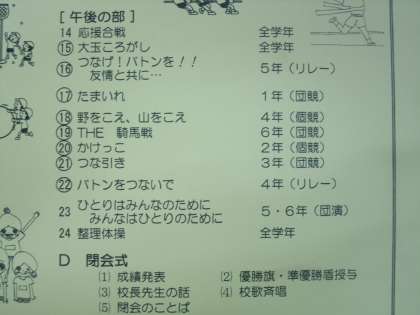 [ 午後の部 ]
14 応援合戦 全学年
⑮ 大玉ころがし 全学年
⑯ つなげ！バトンを！！
友情と共に… 5年（リレー）
⑰ たまいれ 1年（団競）
⑱ 野をこえ、山をこえ 4年（個競）
⑲ THE 騎馬戦 6年（団競）
⑳ かけっこ 2年（個競）
㉑ つな引き 3年（団競）
㉒ バトンをつないで 4年（リレー）
23 ひとりはみんなのために
みんなはひとりのために 5・6年（団演）
24 整理体操 全学年
D 閉会式
(1) 成績発表 (2) 優勝旗・準優勝盾授与
(3) 校長先生の話 (4) 校歌斉唱
(5) 閉会のことば